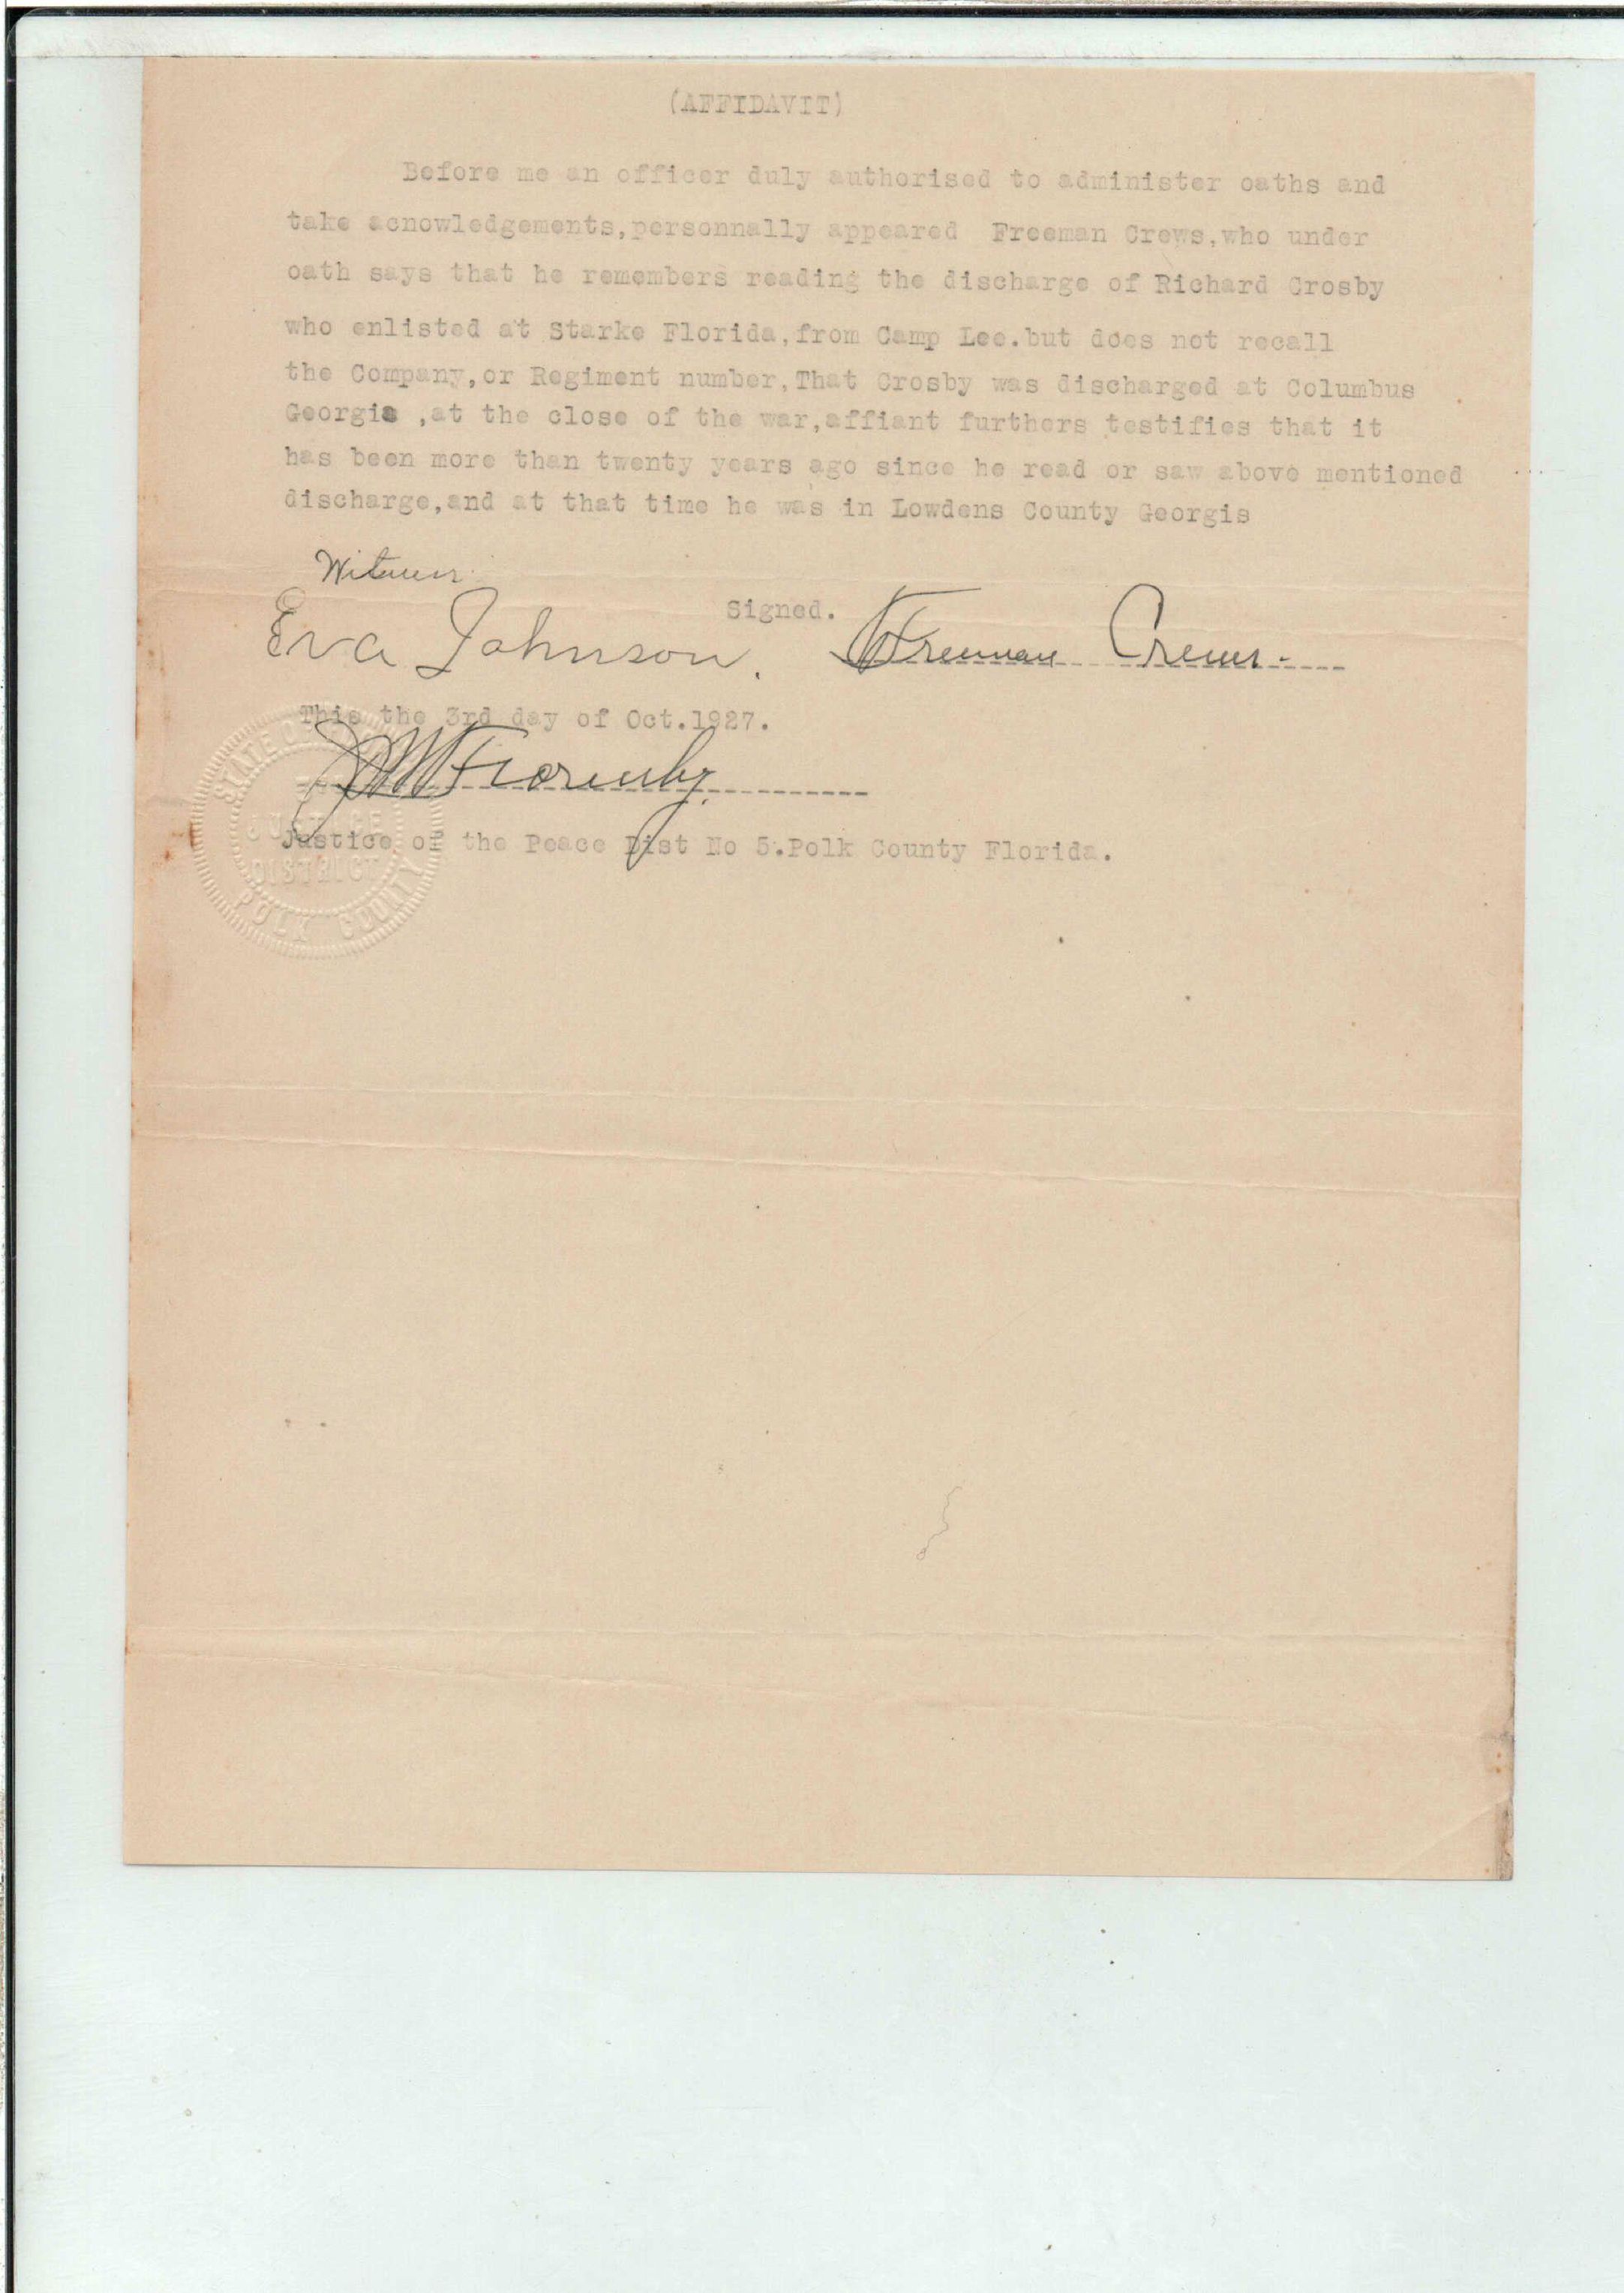 (AFFIDAVIT)
Before me an officer duly authorised to administer oaths and
take acnowledgements,personnally appeared Freeman Crews,who under
oath says that he remembers reading the discharge of Richard Crosby
who enlisted at Starke Florida,from Camp Lee.but does not recall
the Company,or Regiment number,That Crosby was discharged at Columbus
Georgia ,at the close of the war,affiant furthers testifies that it
has been more than twenty years ago since he read or saw above mentioned
discharge,and at that time he was in Lowdens County Georgis
Witness
Signed.
Eva Johnson. Freeman Crews
This the 3rd day of Oct.1927.
Justice of the Peace Dist No 5.Polk County Florida.
STATE OF
JUSTICE
DISTRICT
POLK COUNTY